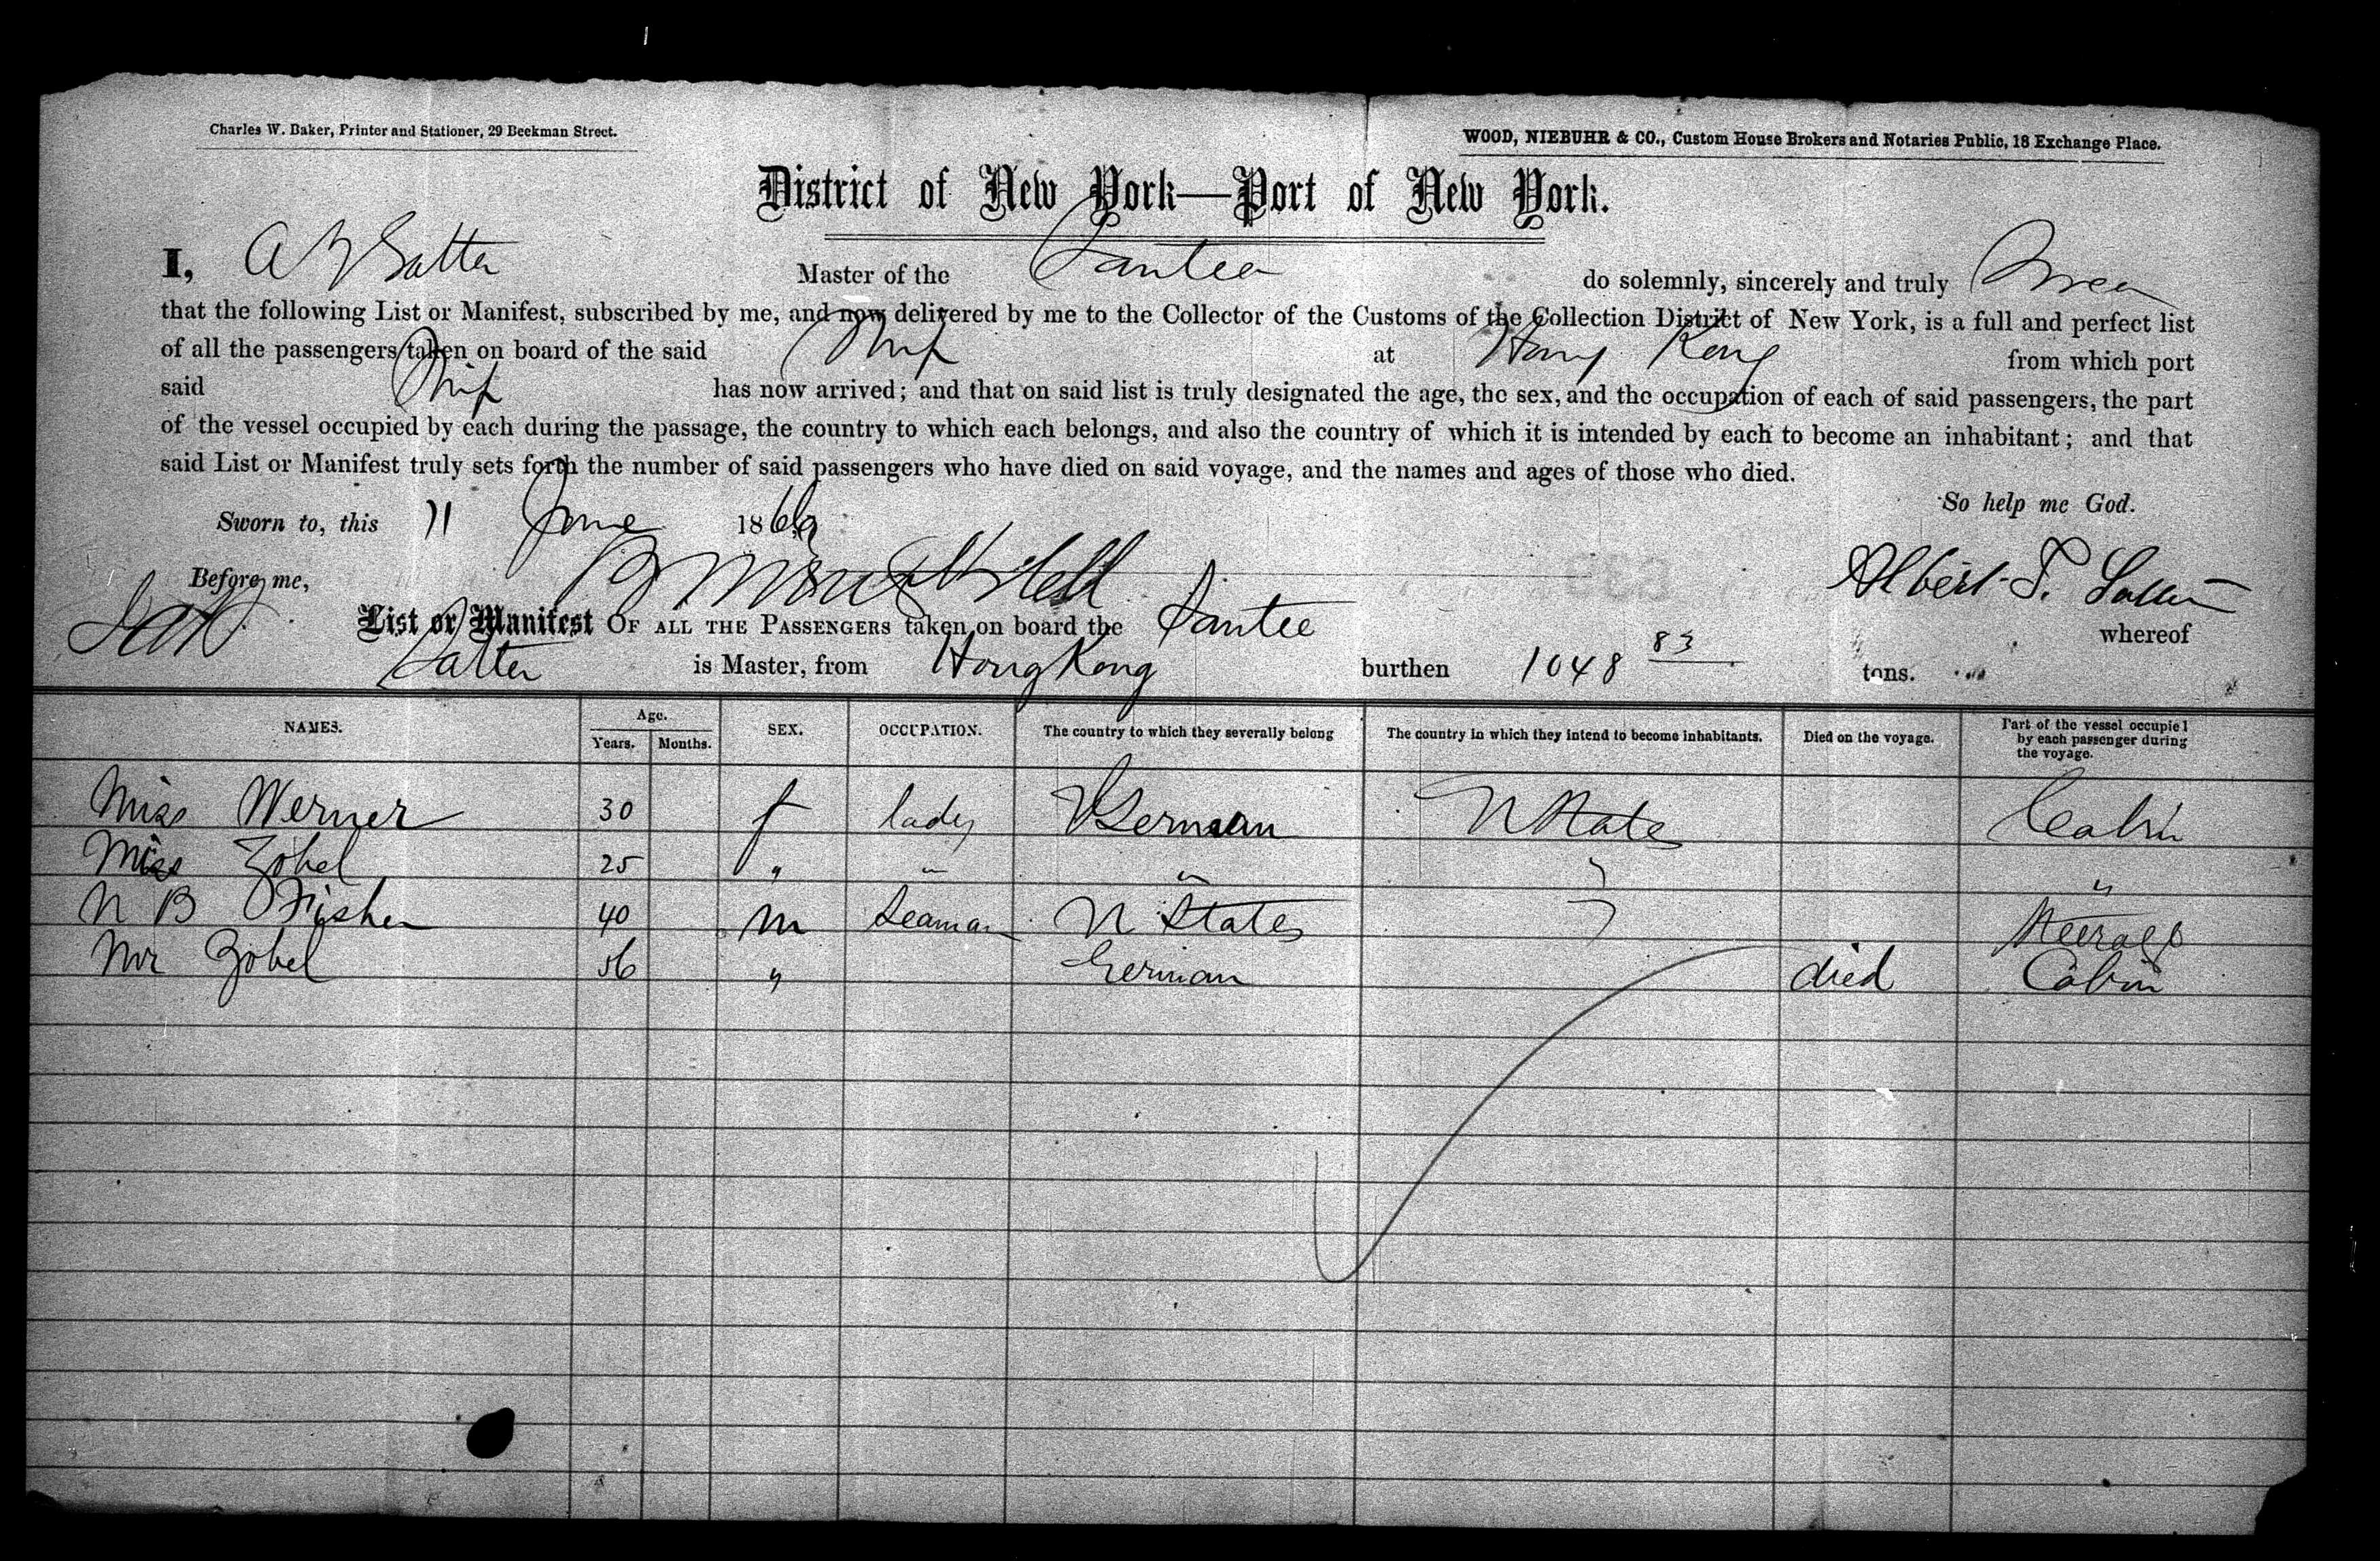 Charles W. Baker, Printer and Stationer, 29 Beekman Street.
WOOD, NIEBUHR & CO., Custom House Brokers and Notaries Public, 18 Exchange Place.
District of New York—Port of New York.
I, Master of the Santee do solemnly, sincerely and truly Swear
that the following List or Manifest, subscribed by me, and now delivered by me to the Collector of the Customs of the Collection District of New York, is a full and perfect list
of all the passengers taken on board of the said Ship at Hong Kong from which port
said Ship has now arrived; and that on said list is truly designated the age, the sex, and the occupation of each of said passengers, the part
of the vessel occupied by each during the passage, the country to which each belongs, and also the country of which it is intended by each to become an inhabitant; and that
said List or Manifest truly sets forth the number of said passengers who have died on said voyage, and the names and ages of those who died.
So help me God.
Sworn to, this 11 June 186
Before me,
Albert
List or Manifest OF ALL THE PASSENGERS taken on board the Santee whereof
is Master, from Hong Kong burthen 1048 83 tons.
NAMES. Age. Years. Months. SEX. OCCUPATION. The country to which they severally belong The country in which they intend to become inhabitants. Died on the voyage. Part of the vessel occupied by each passenger during the voyage.
Miss Werner 30 f lady German U States Cabin
Miss Zobel 25 " " " " "
N B Fisher 40 m Seaman U States " Steerage
Mr Zobel 56 " German died Cabin